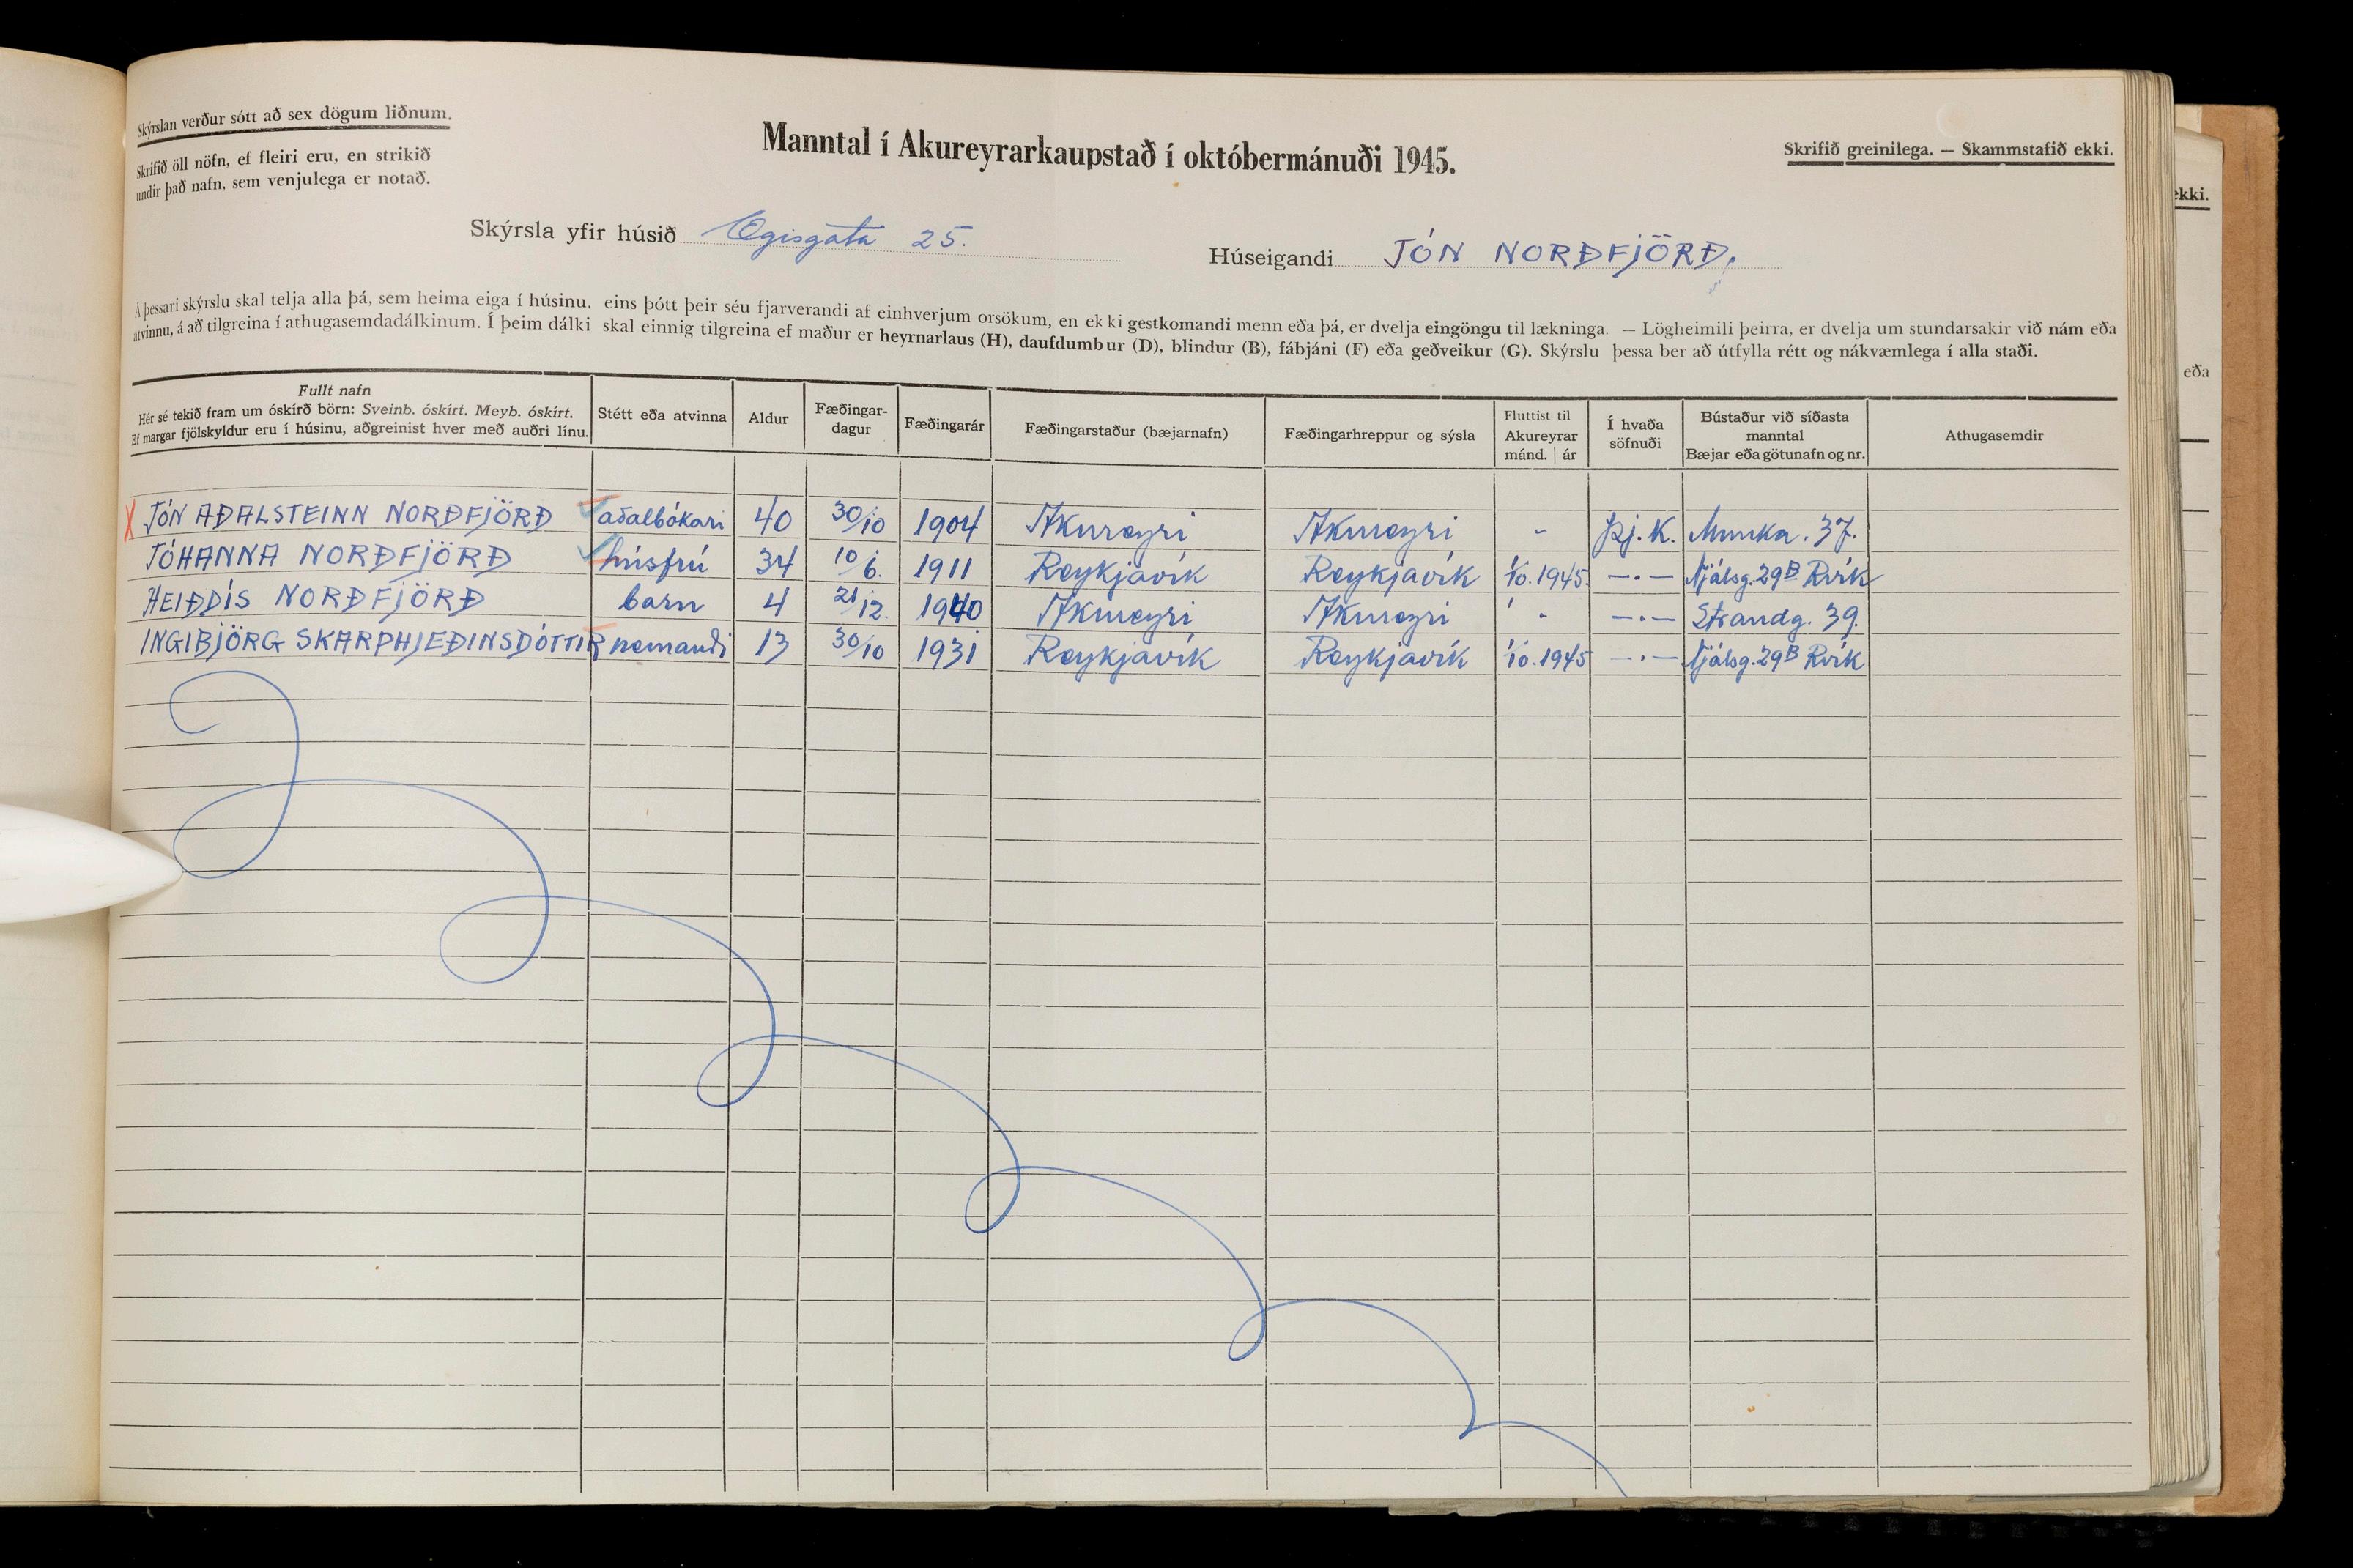 Skýrslan verður sótt að sex dögum liðnum.
Skrifið öll nöfn, ef fleiri eru, en strikið
undir það nafn, sem venjulega er notað.
Manntal í Akureyrarkaupstað í októbermánuði 1945.
Skrifið greinilega. — Skammstafið ekki.
ekki.
Skýrsla yfir húsið Ægisgata 25.
Húseigandi JÓN NORÐFJÖRÐ.
Á þessari skýrslu skal telja alla þá, sem heima eiga í húsinu, eins þótt þeir séu fjarverandi af einhverjum orsökum, en ekki gestkomandi menn eða þá, er dvelja eingöngu til lækninga. — Lögheimili þeirra, er dvelja um stundarsakir við nám eða
atvinnu, á að tilgreina í athugasemdadálkinum. Í þeim dálki skal einnig tilgreina ef maður er heyrnarlaus (H), daufdumbur (D), blindur (B), fábjáni (F) eða geðveikur (G). Skýrslu þessa ber að útfylla rétt og nákvæmlega í alla staði.
eða
Fullt nafn
Hér sé tekið fram um óskírð börn: Sveinb. óskírt. Meyb. óskírt.
Ef margar fjölskyldur eru í húsinu, aðgreinist hver með auðri línu.
Stétt eða atvinna
Aldur
Fæðingar-
dagur
Fæðingarár
Fæðingarstaður (bæjarnafn)
Fæðingarhreppur og sýsla
Fluttist til
Akureyrar
mánd. | ár
Í hvaða
söfnuði
Bústaður við síðasta
manntal
Bæjar eða götunafn og nr.
Athugasemdir
X JÓN AÐALSTEINN NORÐFJÖRÐ aðalbókari 40 30/10 1904 Akureyri Akureyri - Þj. K. Munka. 37.
JÓHANNA NORÐFJÖRÐ húsfrú 34 10/6. 1911 Reykjavík Reykjavík 1/10. 1945. —.— Njálsg. 29B Rvík
HEIÐDÍS NORÐFJÖRÐ barn 4 21/12. 1940 Akureyri Akureyri - —.— Strandg. 39.
INGIBJÖRG SKARPHJEÐINSDÓTTIR nemandi 13 30/10 1931 Reykjavík Reykjavík 1/10. 1945 —.— Njálsg. 29B Rvík